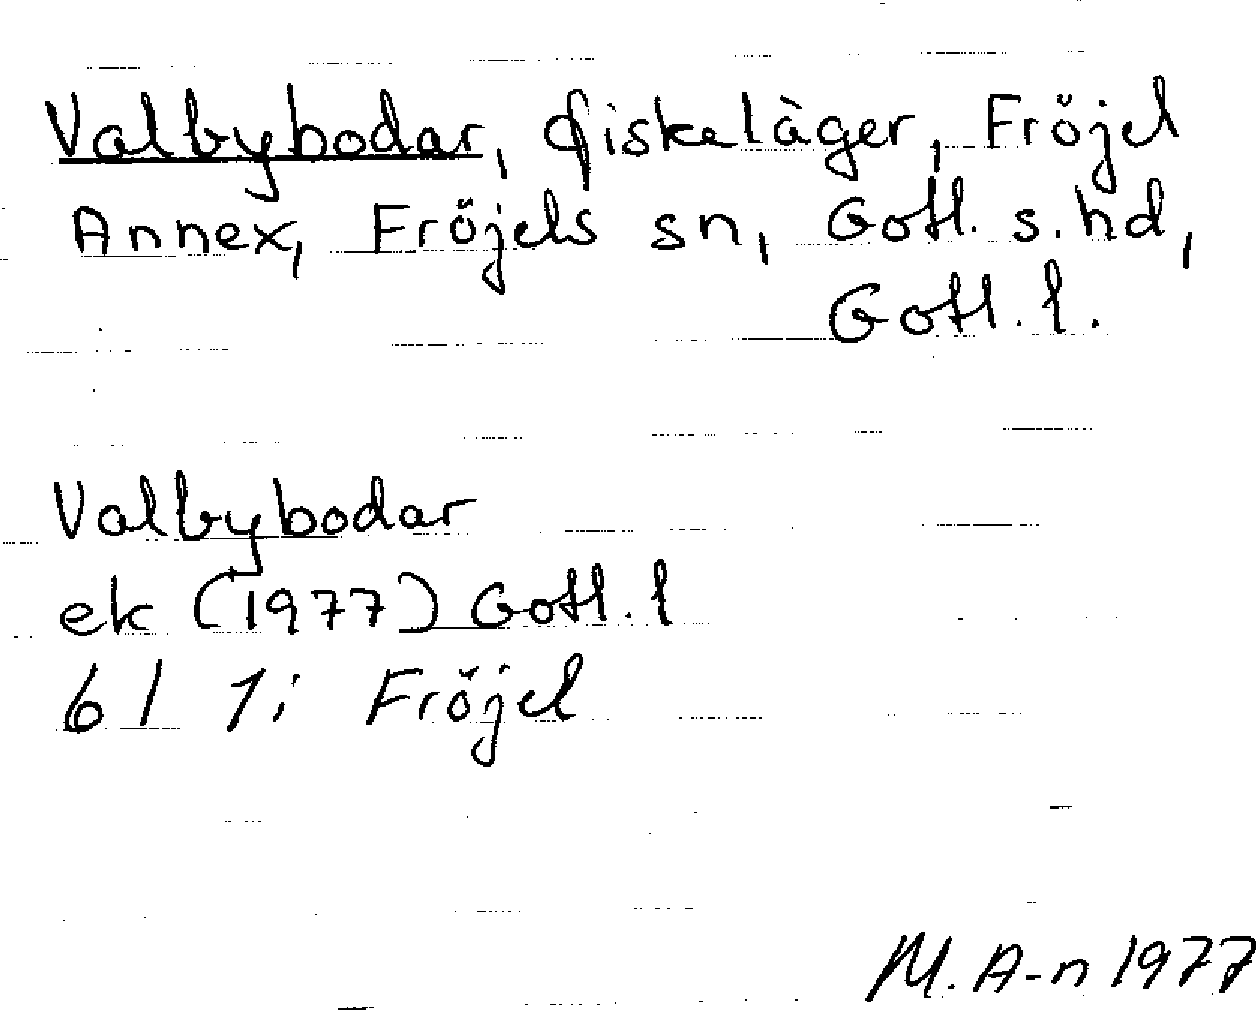 Valbybodar, fiskeläger, Fröjel
Annex, Fröjels sn, Gotl. s. hd,
Gotl. l.
Valbybodar
ek (1977) Gotl. l
6 I 1i Fröjel
M. A-n 1977